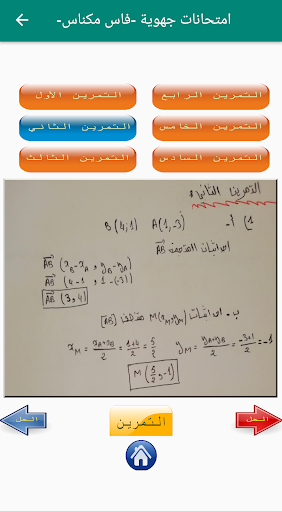 امتحانات جهوية -فاس مكناس-
التمرين الأول
التمرين الرابع
التمرين الثاني
التمرين الخامس
التمرين الثالث
التمرين السادس
التمرين الثاني
1) أ- A(1,-3) B(4,1)
احداثيات المتجهة AB
AB (xB-xA , yB-yA)
AB (4-1 , 1-(-3))
AB (3,4)
ب- احداثيات M(xM,yM) منتصف [AB]
xM = (xA+xB)/2 = (1+4)/2 = 5/2 yM = (yA+yB)/2 = (-3+1)/2 = -1
M(5/2,-1)
الحل
التمرين
الحل